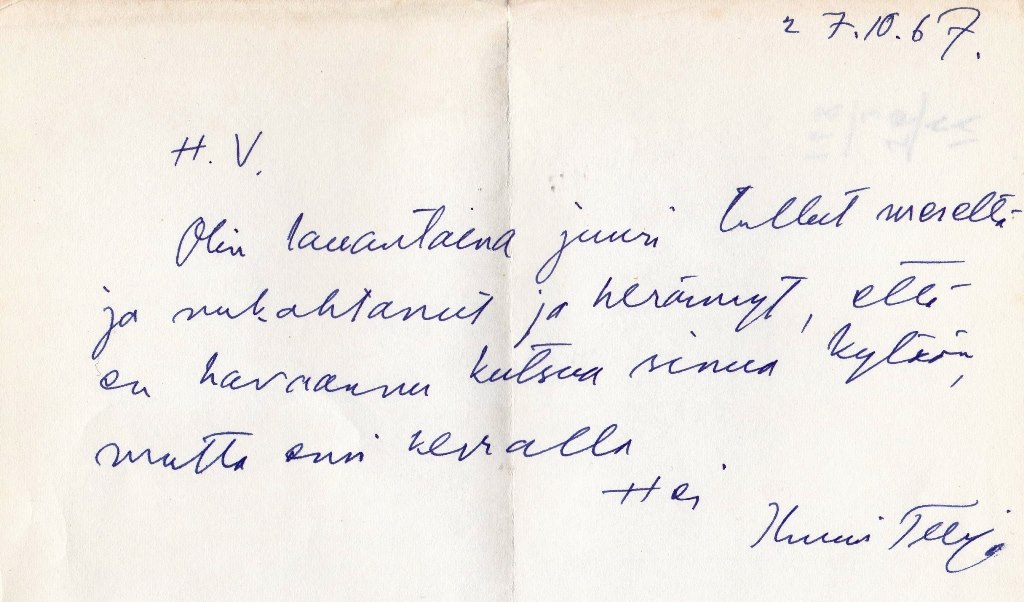 27.10.67.
H. V.
Olin lauantaina juuri tullut mereltä
ja nukahtanut ja herännyt, että
en havaannu kutsua sinua kylään,
mutta ensi kerralla
Hei